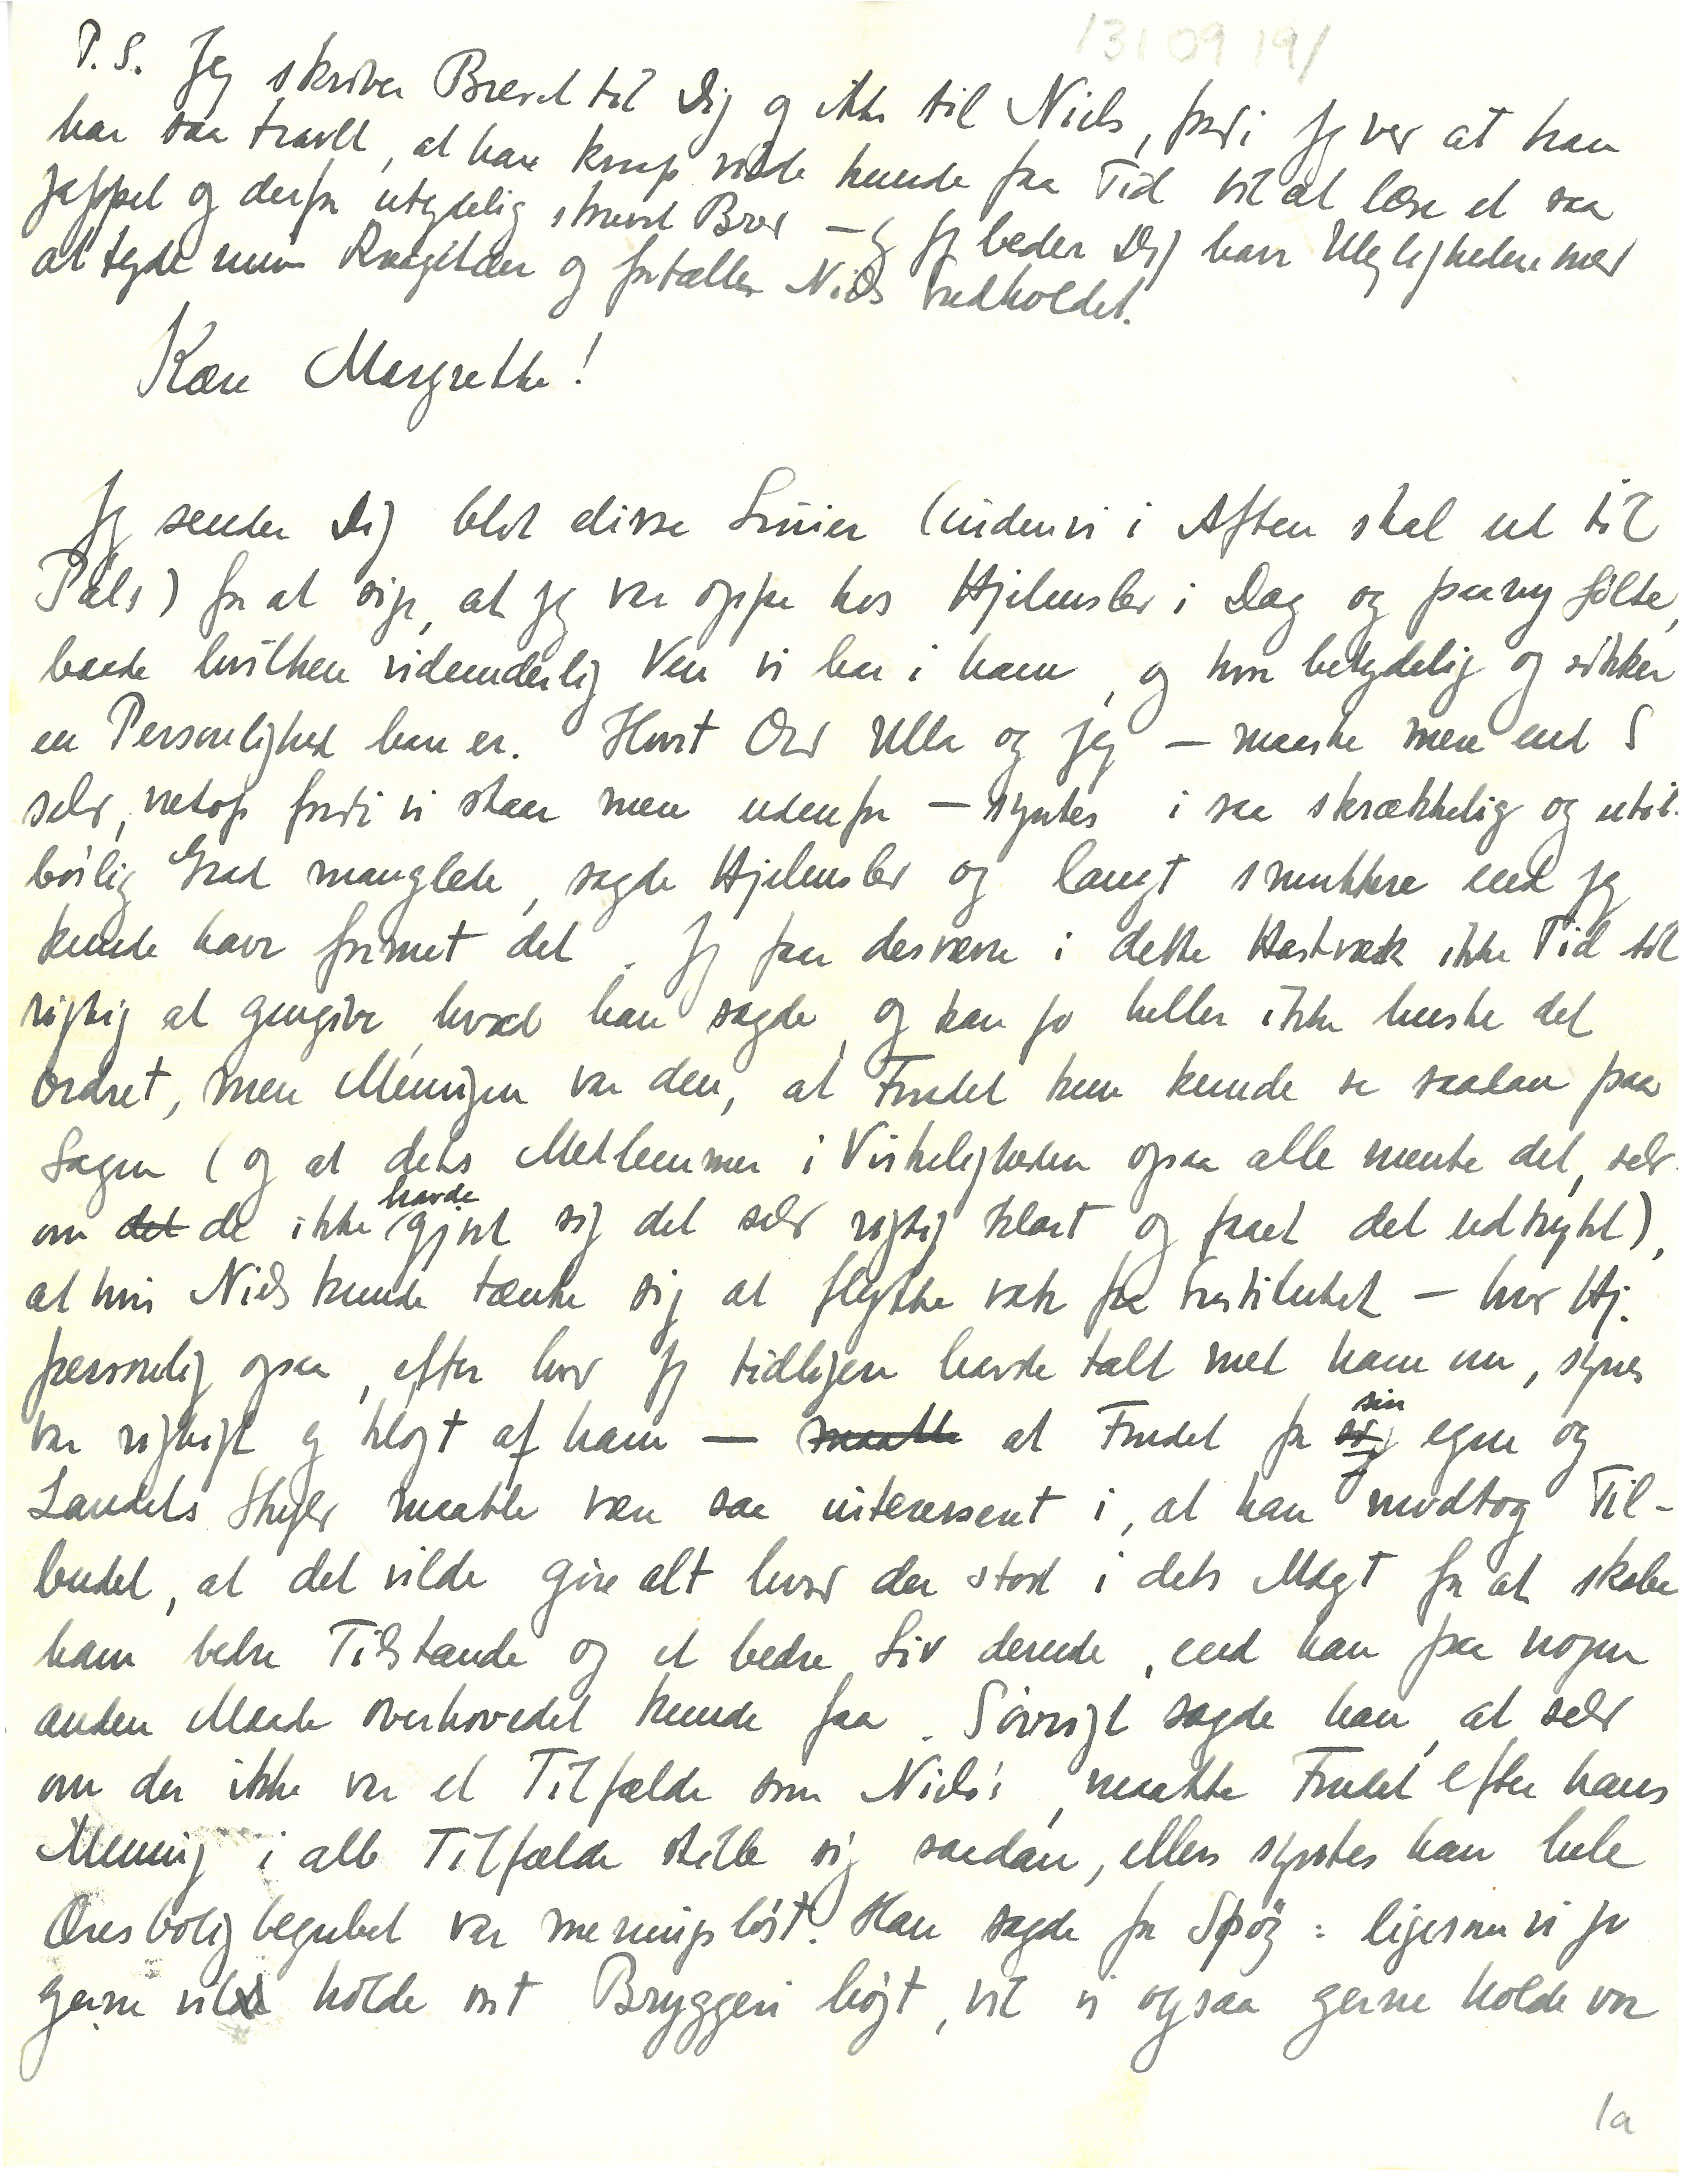 /31 09 19/
P.S. Jeg skriver Brevet til Dig og ikke til Niels, fordi jeg ved at han
har saa travlt, at han knap vilde kunde faa Tid til at læse et saa
jappet og derfor utydelig skrevet Brev — og jeg beder Dig have Ulejligheden med
at tyde mine Kragetæer og fortælle Niels Indholdet.
Kære Margrethe!
Jeg sender Dig blot disse Linier (inden vi i Aften skal ud til
Pals) for at sige, at jeg var oppe hos Hjelmslev i Dag og paany følte,
baade hvilken vidunderlig Ven vi har i ham, og hvor betydelig og sikker
en Personlighed han er. Hvert Ord Ulla og jeg — maaske mere end I
selv, netop fordi vi staar mere udenfor — syntes i saa skrækkelig og util-
børlig Grad manglede, sagde Hjelmslev og langt smukkere end jeg
kunde have formet det. Jeg faar desværre i dette Hastværk ikke Tid til
rigtig at gengive, hvad han sagde, og kan jo heller ikke huske det
ordret, men Meningen var den, at Fondet kun kunde se saadan paa
Sagen (og at dets Medlemmer i Virkeligheden ogsaa alle mente det, selv-
om det de ikke havde gjort sig det selv rigtig klart og faaet det udtrykt),
at hvis Niels kunde tænke sig at flytte væk fra Institutet — hvad Hj.
personlig ogsaa, efter hvad jeg tidligere havde talt med ham om, synes
var rigtigt og klogt af ham — maatte at Fondet for sin egen og
Landets Skyld maatte være saa interesseret i, at han modtog Til-
budet, at det vilde gøre alt hvad der stod i dets Magt for at skabe
ham bedre Tilstande og et bedre Liv derude, end han paa nogen
anden Maade overhovedet kunde faa. Iøvrigt sagde han, at selv
om der ikke var et Tilfælde som Niels', maatte Fondet efter hans
Mening i alle Tilfælde stille sig saadan, ellers syntes han hele
Æresboligbegrebet var meningsløst. Han sagde for Spøg: ligesom vi jo
gerne vil holde vort Bryggeri højt, vil vi ogsaa gerne holde vor
1a